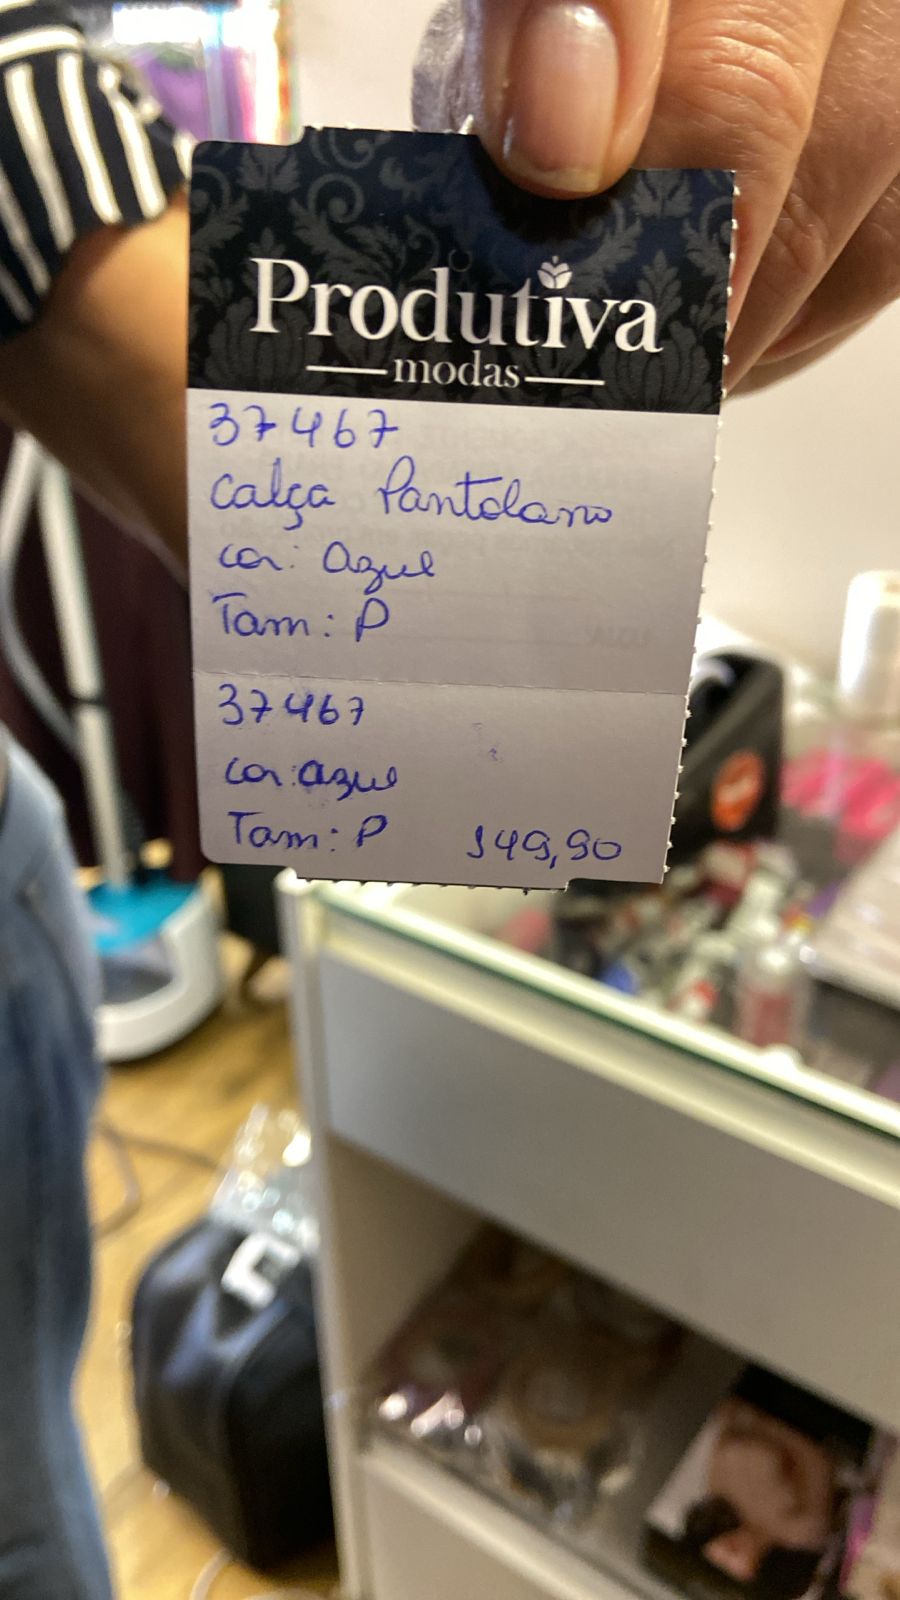 Produtiva
modas
37467
Calça Pantolano
cor: azul
Tam: P
37467
cor: azul
Tam: P 149,90